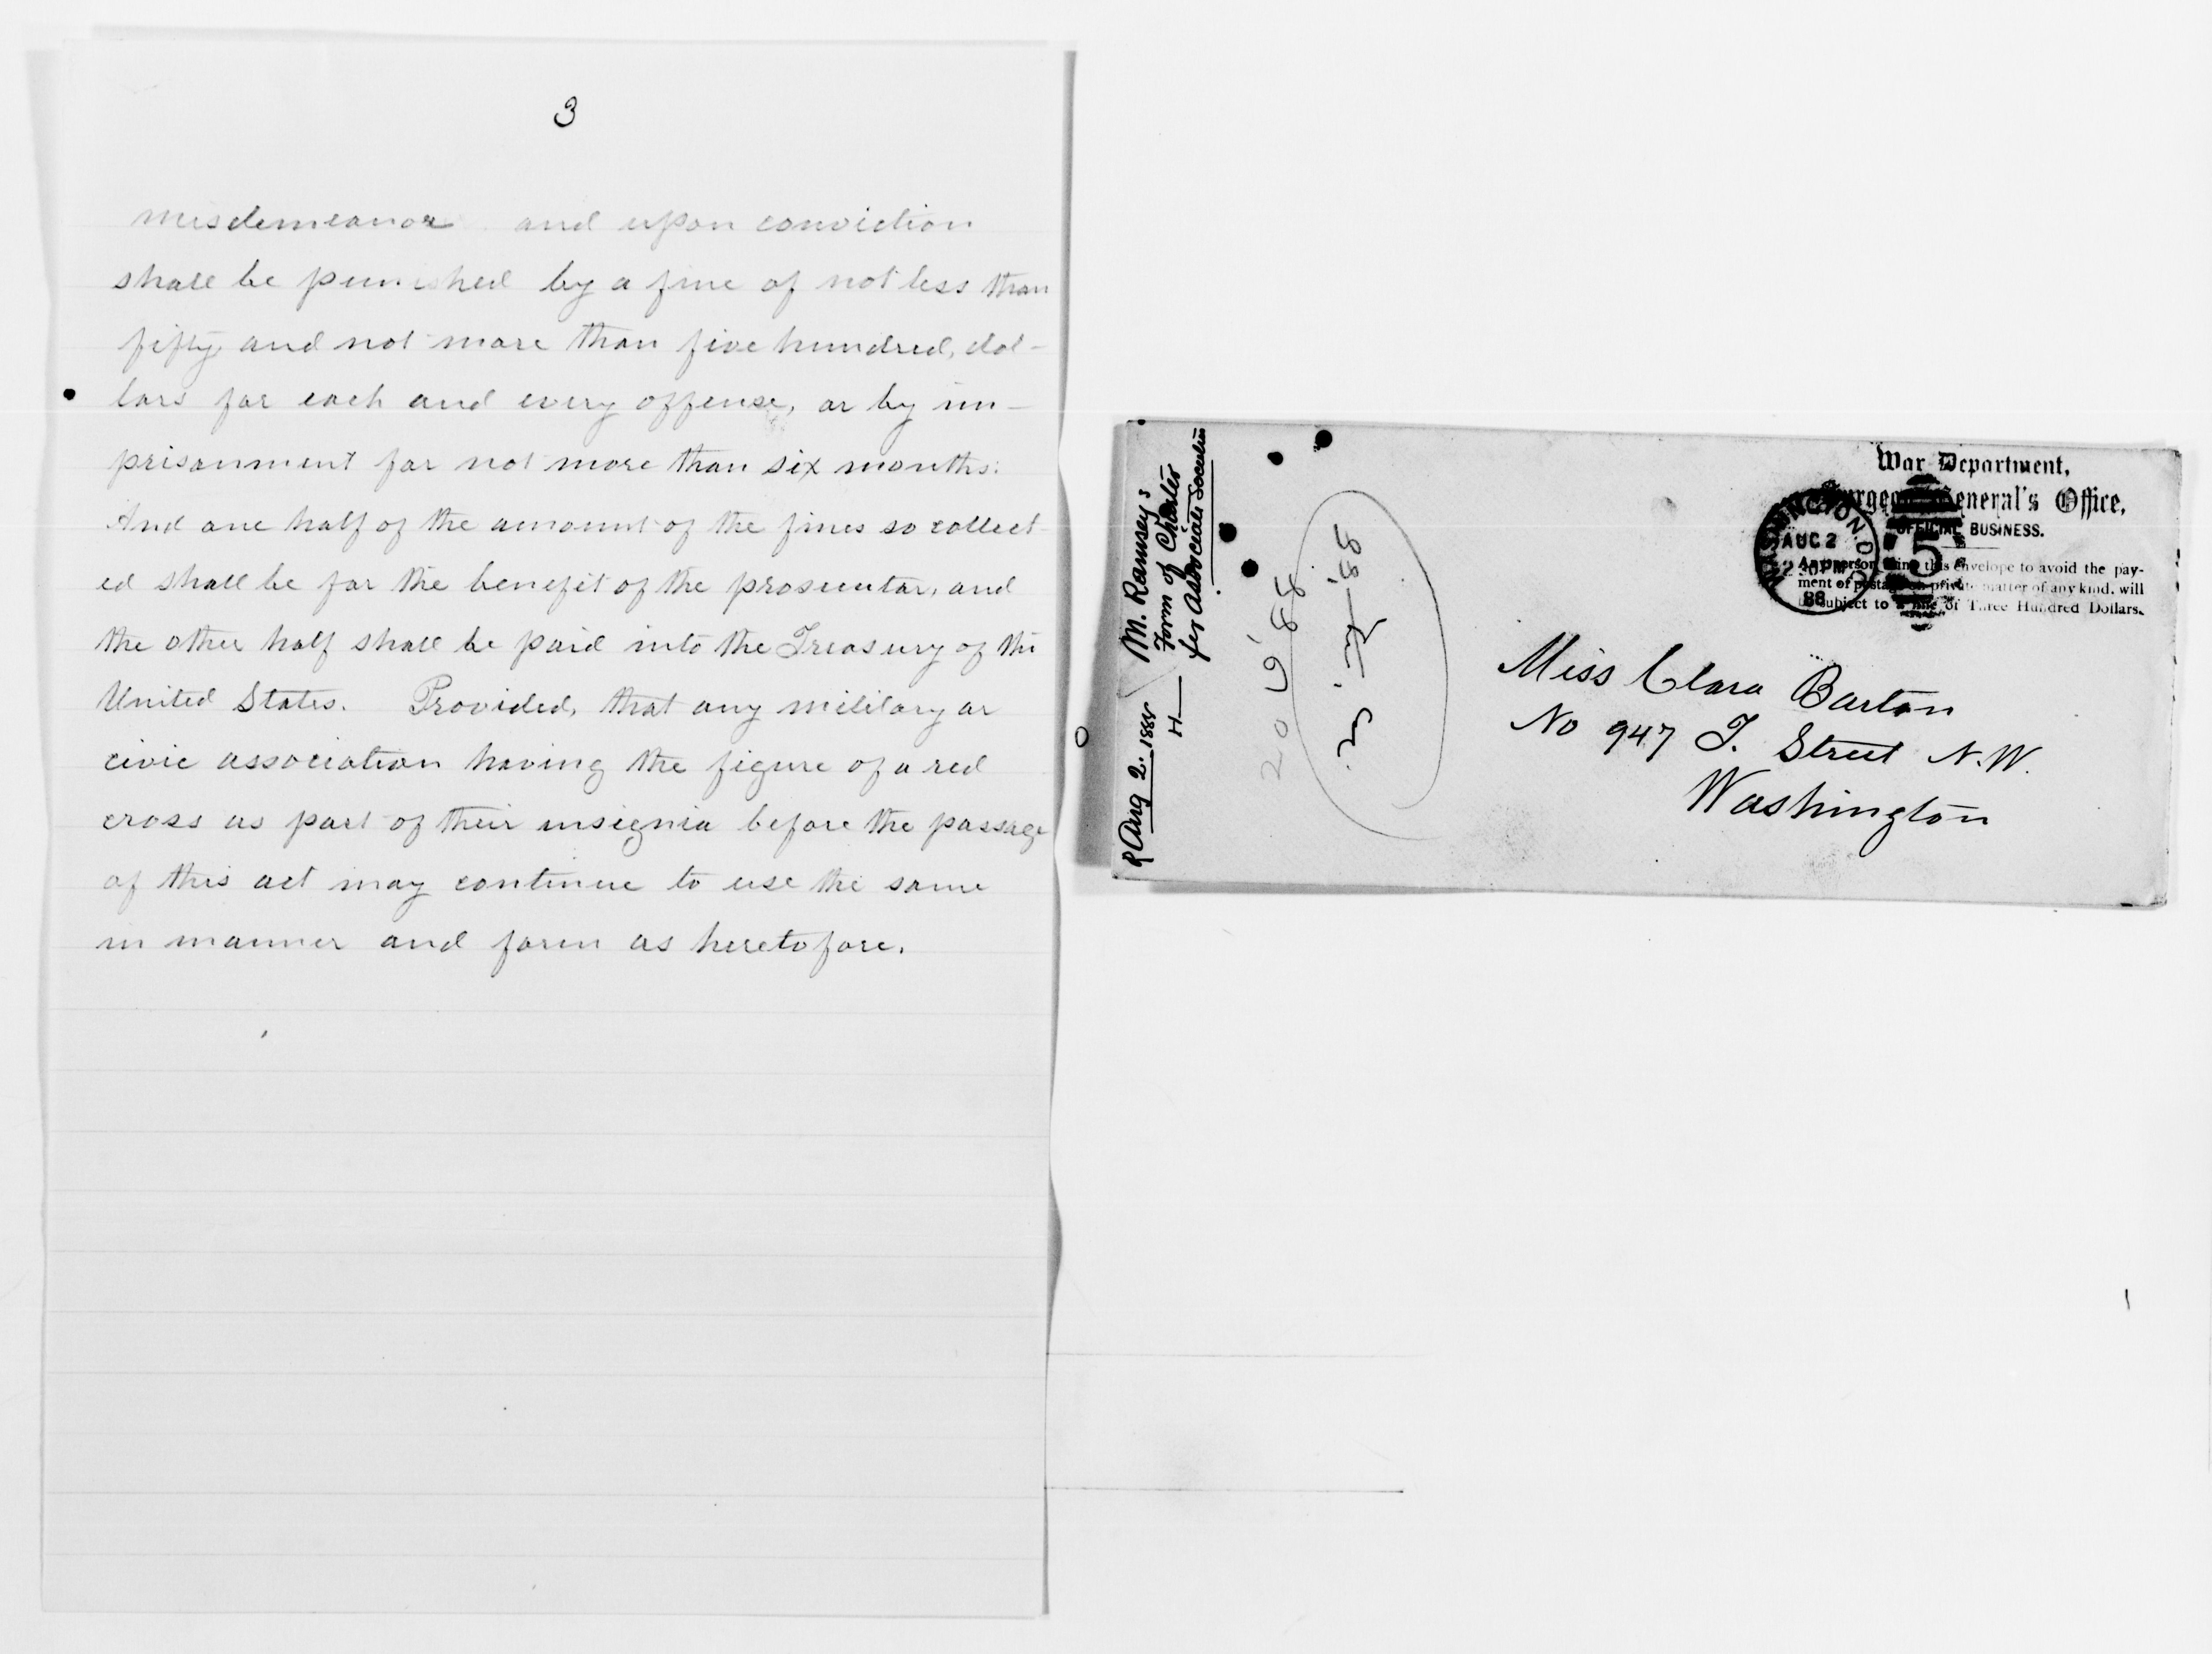 3
misdemeanor and upon conviction
shall be punished by a fine of not less than
fifty and not more than five hundred, dol-
lars for each and every offense, or by im-
prisonment for not more than six months.
And one half of the amount of the fines so collect-
ed shall be for the benefit of the prosecutor, and
the other half shall be paid into the Treasury of the
United States. Provided, that any military or
civic association having the figure of a red
cross as part of their insignia before the passage
of this act may continue to use the same
in manner and form as heretofore.
R Aug 2. 1888
H—
M. Ramsey's
Form of Charter
for Associate Societies
War Department,
Surgeon General's Office,
OFFICIAL BUSINESS.
Any person using this envelope to avoid the pay-
ment of postage on private matter of any kind, will
be subject to a fine of Three Hundred Dollars.
WASHINGTON. D.C.
AUG 2
88
5
Miss Clara Barton
No 947 T. Street N.W.
Washington